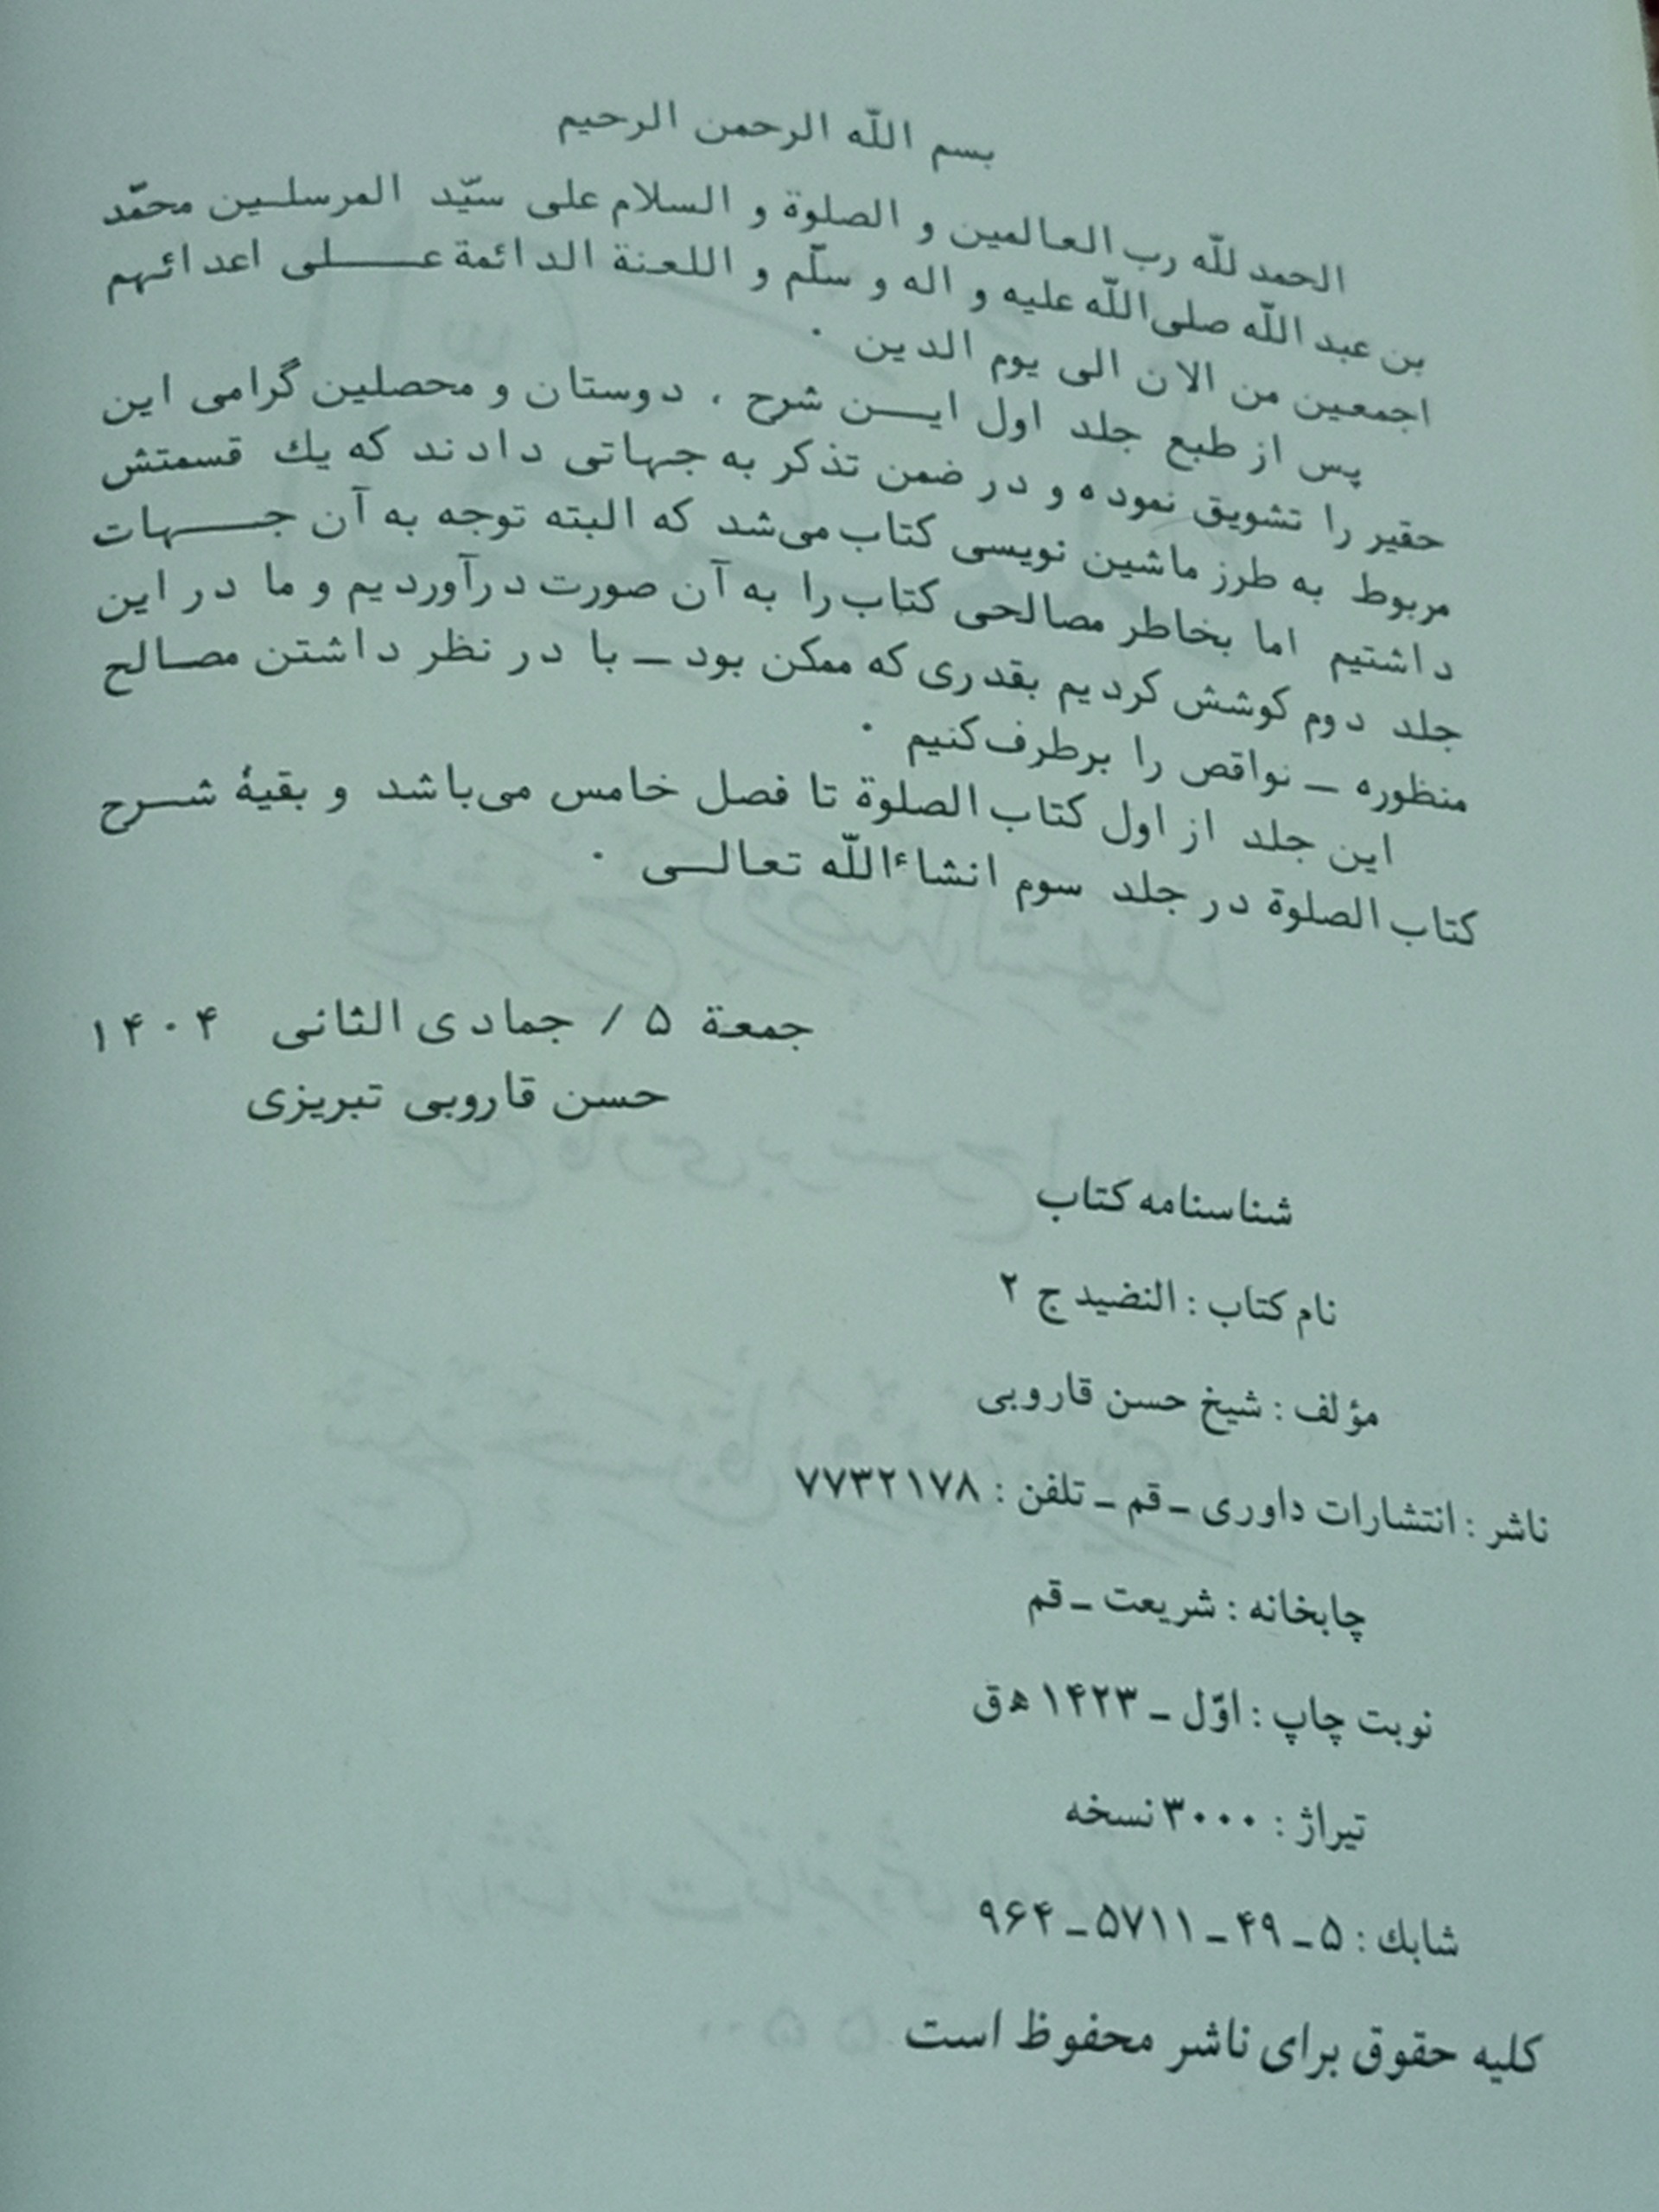 بسم اللّه الرحمن الرحیم
الحمد للّه رب العالمین و الصلوة و السلام علی سیّد المرسلین محمّد
بن عبد اللّه صلی‌اللّه علیه و اله و سلّم و اللعنة الدائمة علی اعدائهم
اجمعین من الان الی یوم الدین ۰
پس از طبع جلد اول این شرح ، دوستان و محصلین گرامی این
حقیر را تشویق نموده و در ضمن تذکر به جهاتی دادند که یك قسمتش
مربوط به طرز ماشین نویسی کتاب می‌شد که البته توجه به آن جهات
داشتیم اما بخاطر مصالحی کتاب را به آن صورت درآوردیم و ما در این
جلد دوم کوشش کردیم بقدری که ممکن بود ــ با در نظر داشتن مصالح
منظوره ــ نواقص را برطرف کنیم ۰
این جلد از اول کتاب الصلوة تا فصل خامس می‌باشد و بقیهٔ شرح
کتاب الصلوة در جلد سوم انشاءاللّه تعالی ۰
جمعة ۵ / جمادی الثانی ۱۴۰۴
حسن قاروبی تبریزی
شناسنامه کتاب
نام کتاب : النضید ج ۲
مؤلف : شیخ حسن قاروبی
ناشر : انتشارات داوری ــ قم ــ تلفن : ۷۷۳۲۱۷۸
چابخانه : شریعت ــ قم
نوبت چاپ : اوّل ــ ۱۴۲۳ ه‍ ق
تیراژ : ۳۰۰۰ نسخه
شابك : ۵ ــ ۴۹ ــ ۵۷۱۱ ــ ۹۶۴
کلیه حقوق برای ناشر محفوظ است